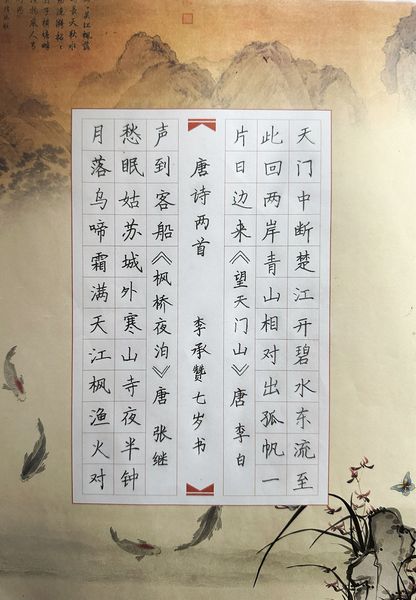 天门中断楚江开碧水东流至
此回两岸青山相对出孤帆一
片日边来《望天门山》唐 李白
唐诗两首 李承贊七岁书
月落乌啼霜满天江枫渔火对
愁眠姑苏城外寒山寺夜半钟
声到客船《枫桥夜泊》唐 张继